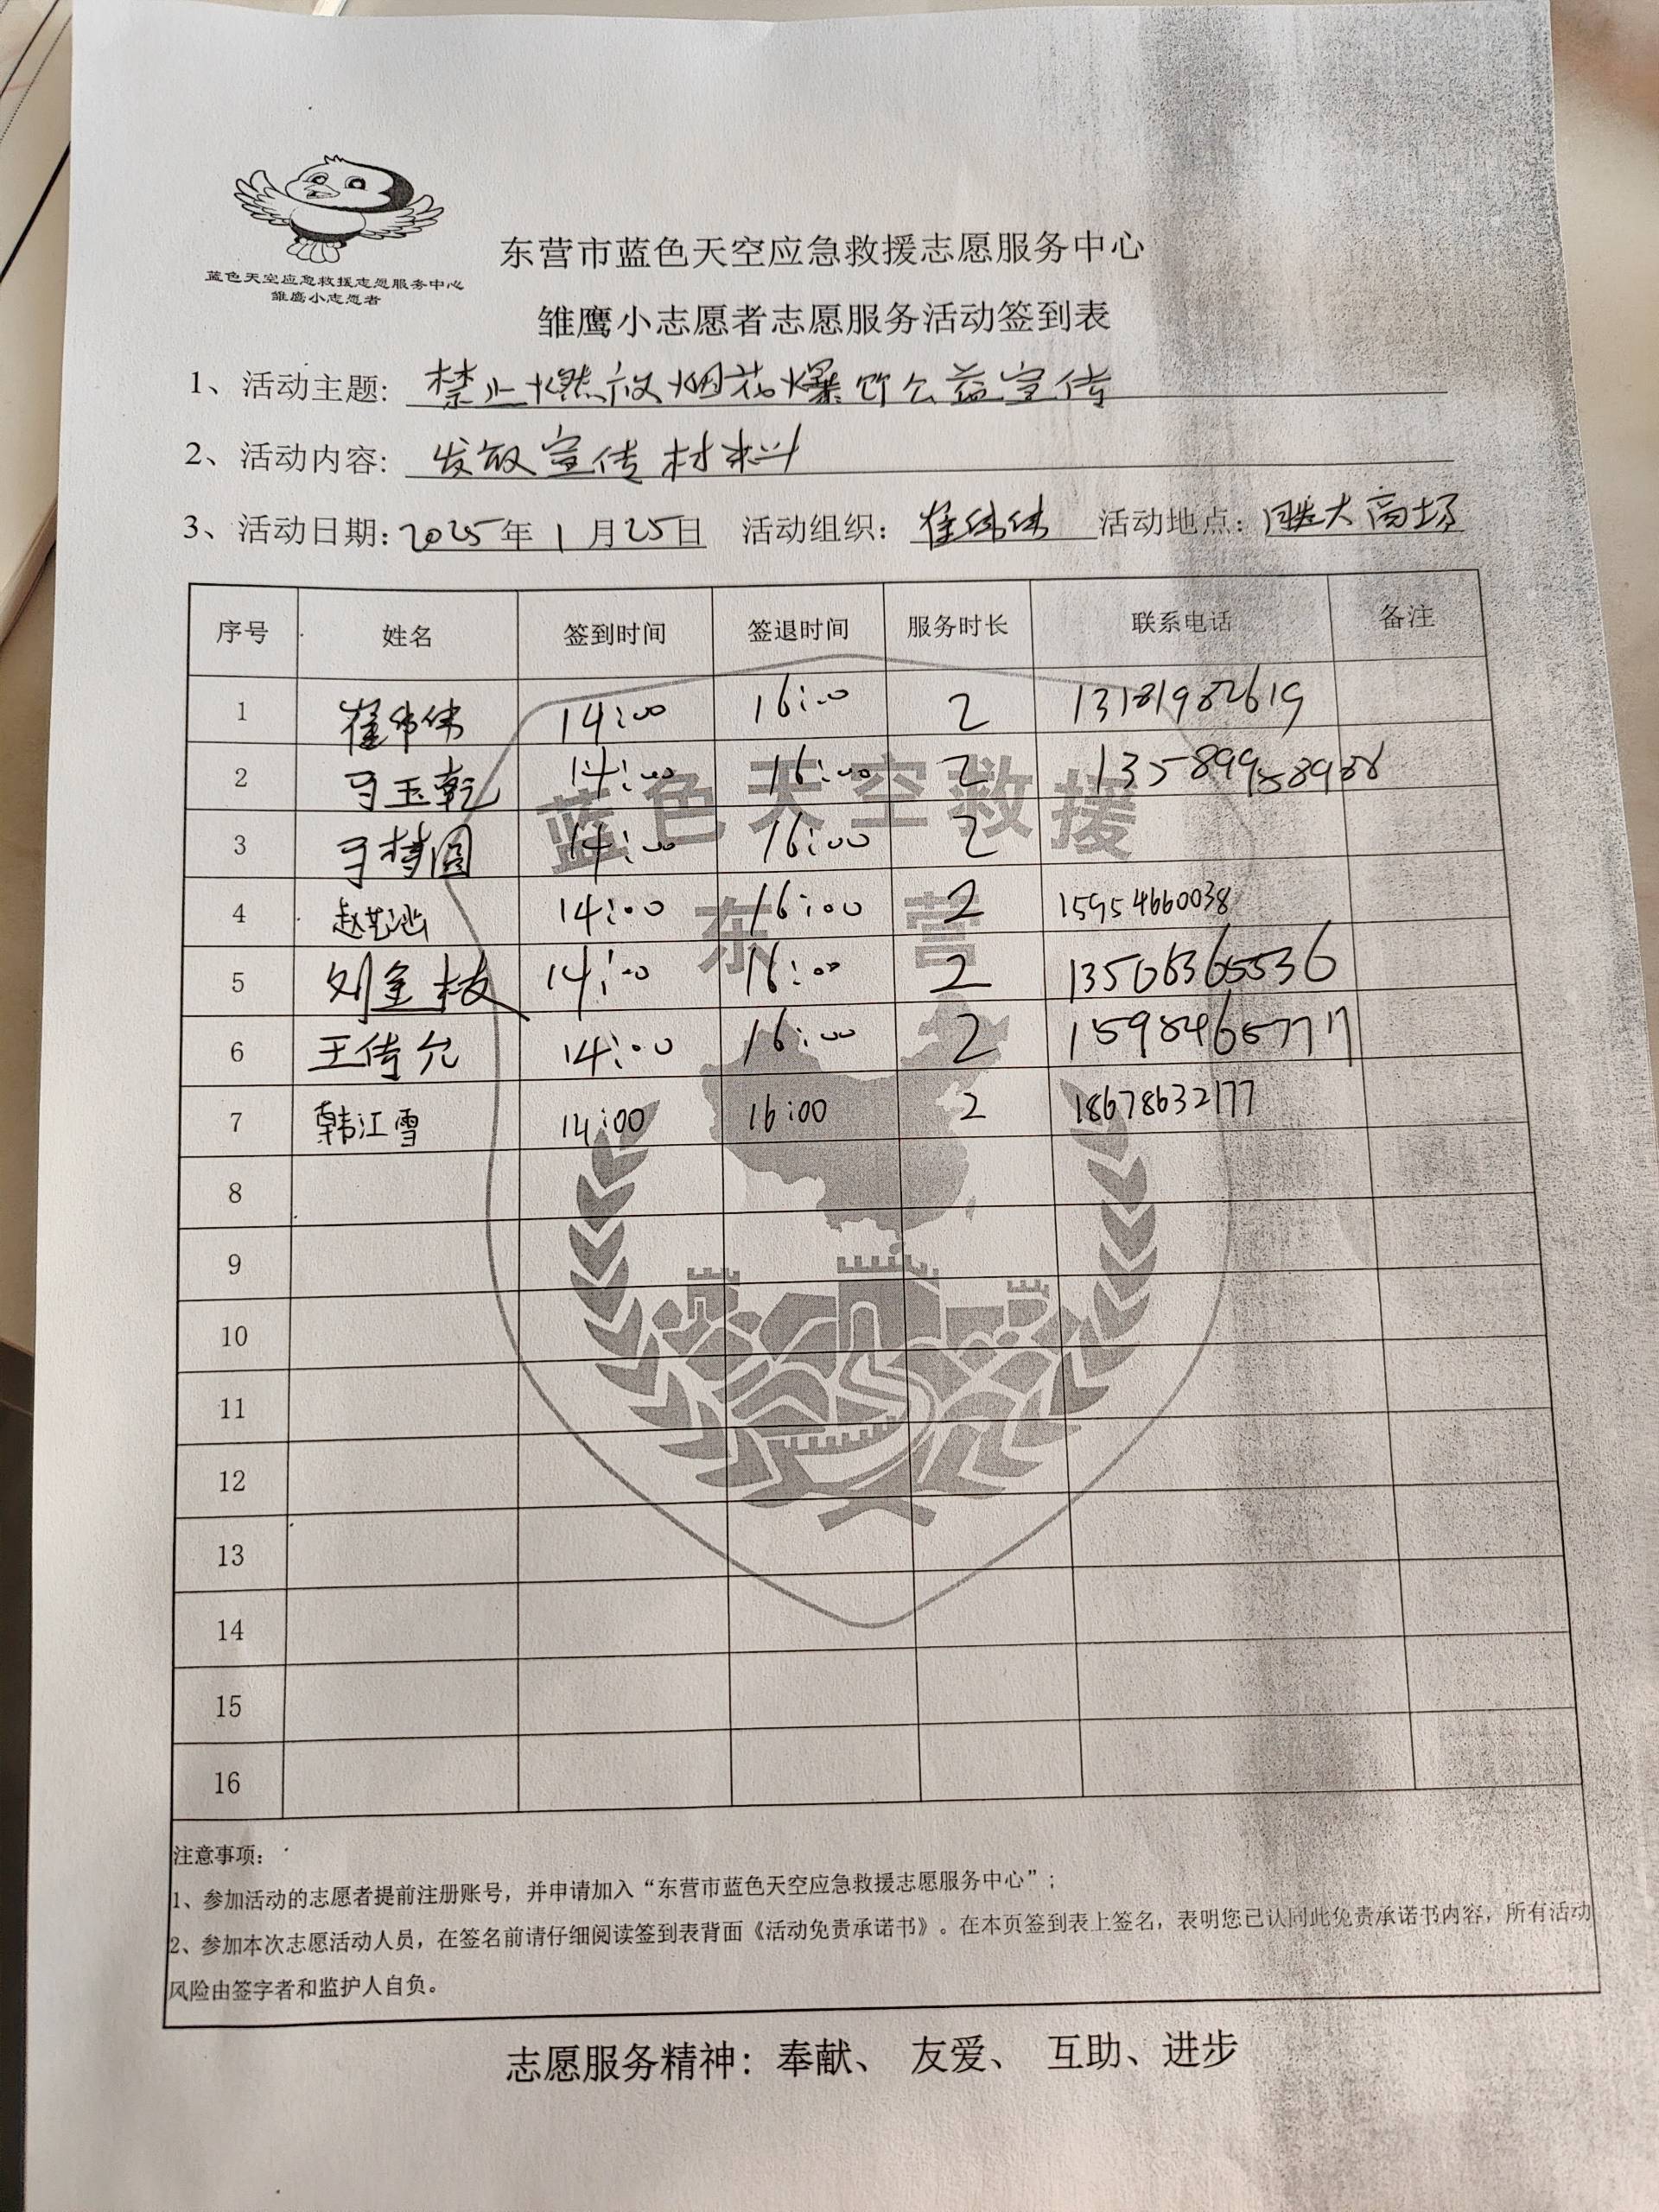 蓝色天空应急救援志愿服务中心
雏鹰小志愿者
东营市蓝色天空应急救援志愿服务中心
雏鹰小志愿者志愿服务活动签到表
1、活动主题: 禁止燃放烟花爆竹公益宣传
2、活动内容: 发放宣传材料
3、活动日期: 2025年1月25日 活动组织: 崔伟伟 活动地点: 胜大商场
序号 姓名 签到时间 签退时间 服务时长 联系电话 备注
1 崔伟伟 14:00 16:00 2 13181982619
2 玉乾 14:00 16:00 2
3 梦圆 14:00 16:00 2
4 赵艺涵 14:00 16:00 2 15954660038
5 刘金枝 14:00 16:00 2 13506365536
6 王传允 14:00 16:00 2
7 韩江雪 14:00 16:00 2 18678632177
8
9
10
11
12
13
14
15
16
蓝色天空救援
东营
注意事项:
1、参加活动的志愿者提前注册账号，并申请加入“东营市蓝色天空应急救援志愿服务中心”;
2、参加本次志愿活动人员，在签名前请仔细阅读签到表背面《活动免责承诺书》。在本页签到表上签名，表明您已认同此免责承诺书内容，所有活动
风险由签字者和监护人自负。
志愿服务精神: 奉献、 友爱、 互助、进步